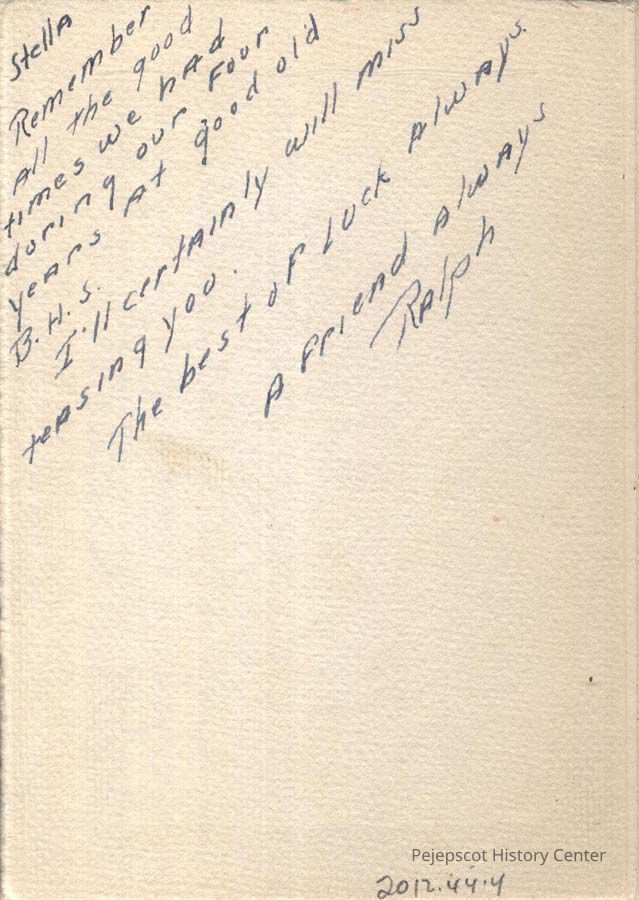 Stella
Remember
All the good
times we had
doring our four
years at good old
B.H.S.
I'll certainly will miss
teasing you.
The best of luck always.
A friend always
Ralph
Pejepscot History Center
2012.44.4